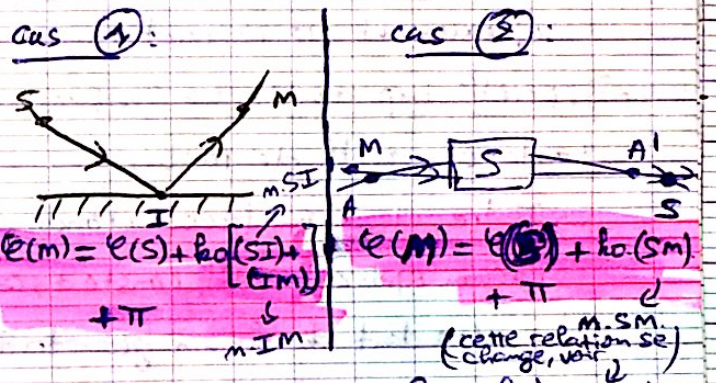 cas ① :
S
M
I
m.SI
φ(M) = φ(S) + k₀[(SI)+
(IM)]
+ π
m.IM
cas ② :
M
S
A'
A
S
φ(M) = φ(S) + k₀.(SM)
+ π
m.SM.
(cette relation se
change, voir